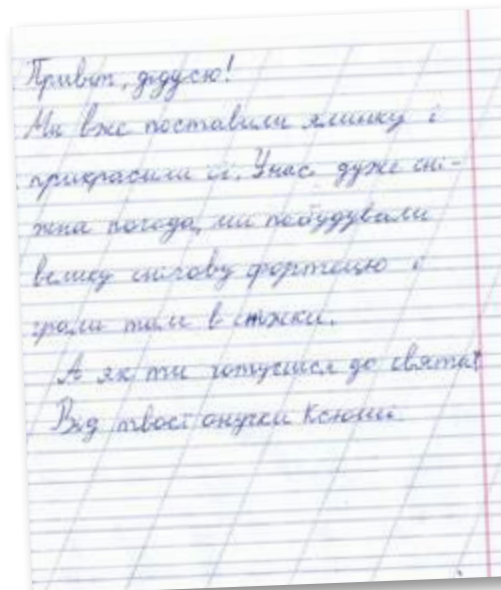 Привіт, дідусю!
Ми вже поставили ялинку і
прикрасили її. У нас дуже сні-
жна погода, ми побудували
велику снігову фортецю і
грали там в сніжки.
А як ти готуєшся до свята?
Від твоєї онучки Ксюші.